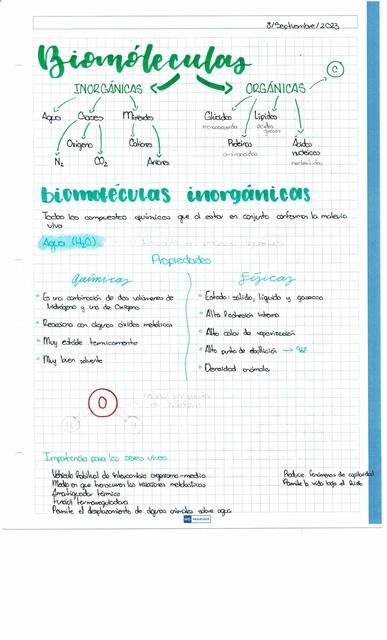 8/Septiembre/2023
Biomóleculas
INORGÁNICAS ORGÁNICAS C
Agua Gases Minerales Glúcidos Lípidos
monosacárido ácidos grasos
Oxígeno Cationes Proteínas Ácidos nucleicos
aminoácidos nucleótidos
N₂ CO₂ Aniones
biomoléculas inorgánicas
Todos los compuestos químicos que al estar en conjunto conforman la materia
viva
Agua (H₂O)
Propiedades
Químicas Físicas
Es una combinación de dos volúmenes de
hidrógeno y uno de Oxígeno
Reacciona con algunos óxidos metálicos
Muy estable térmicamente
Muy buen solvente
Estado sólido, líquido y gaseoso
Alta cohesión interna
Alto calor de vaporización
Alto punto de ebullición
Densidad anómala
O
Importancia para los seres vivos
Vehículo de intercambio organismo-medio
Medio en que transcurren las reacciones metabólicas
Amortiguador térmico
Función termorreguladora
Permite el desplazamiento de algunos animales sobre agua
Produce fenómenos de capilaridad
Permite la vida bajo el hielo